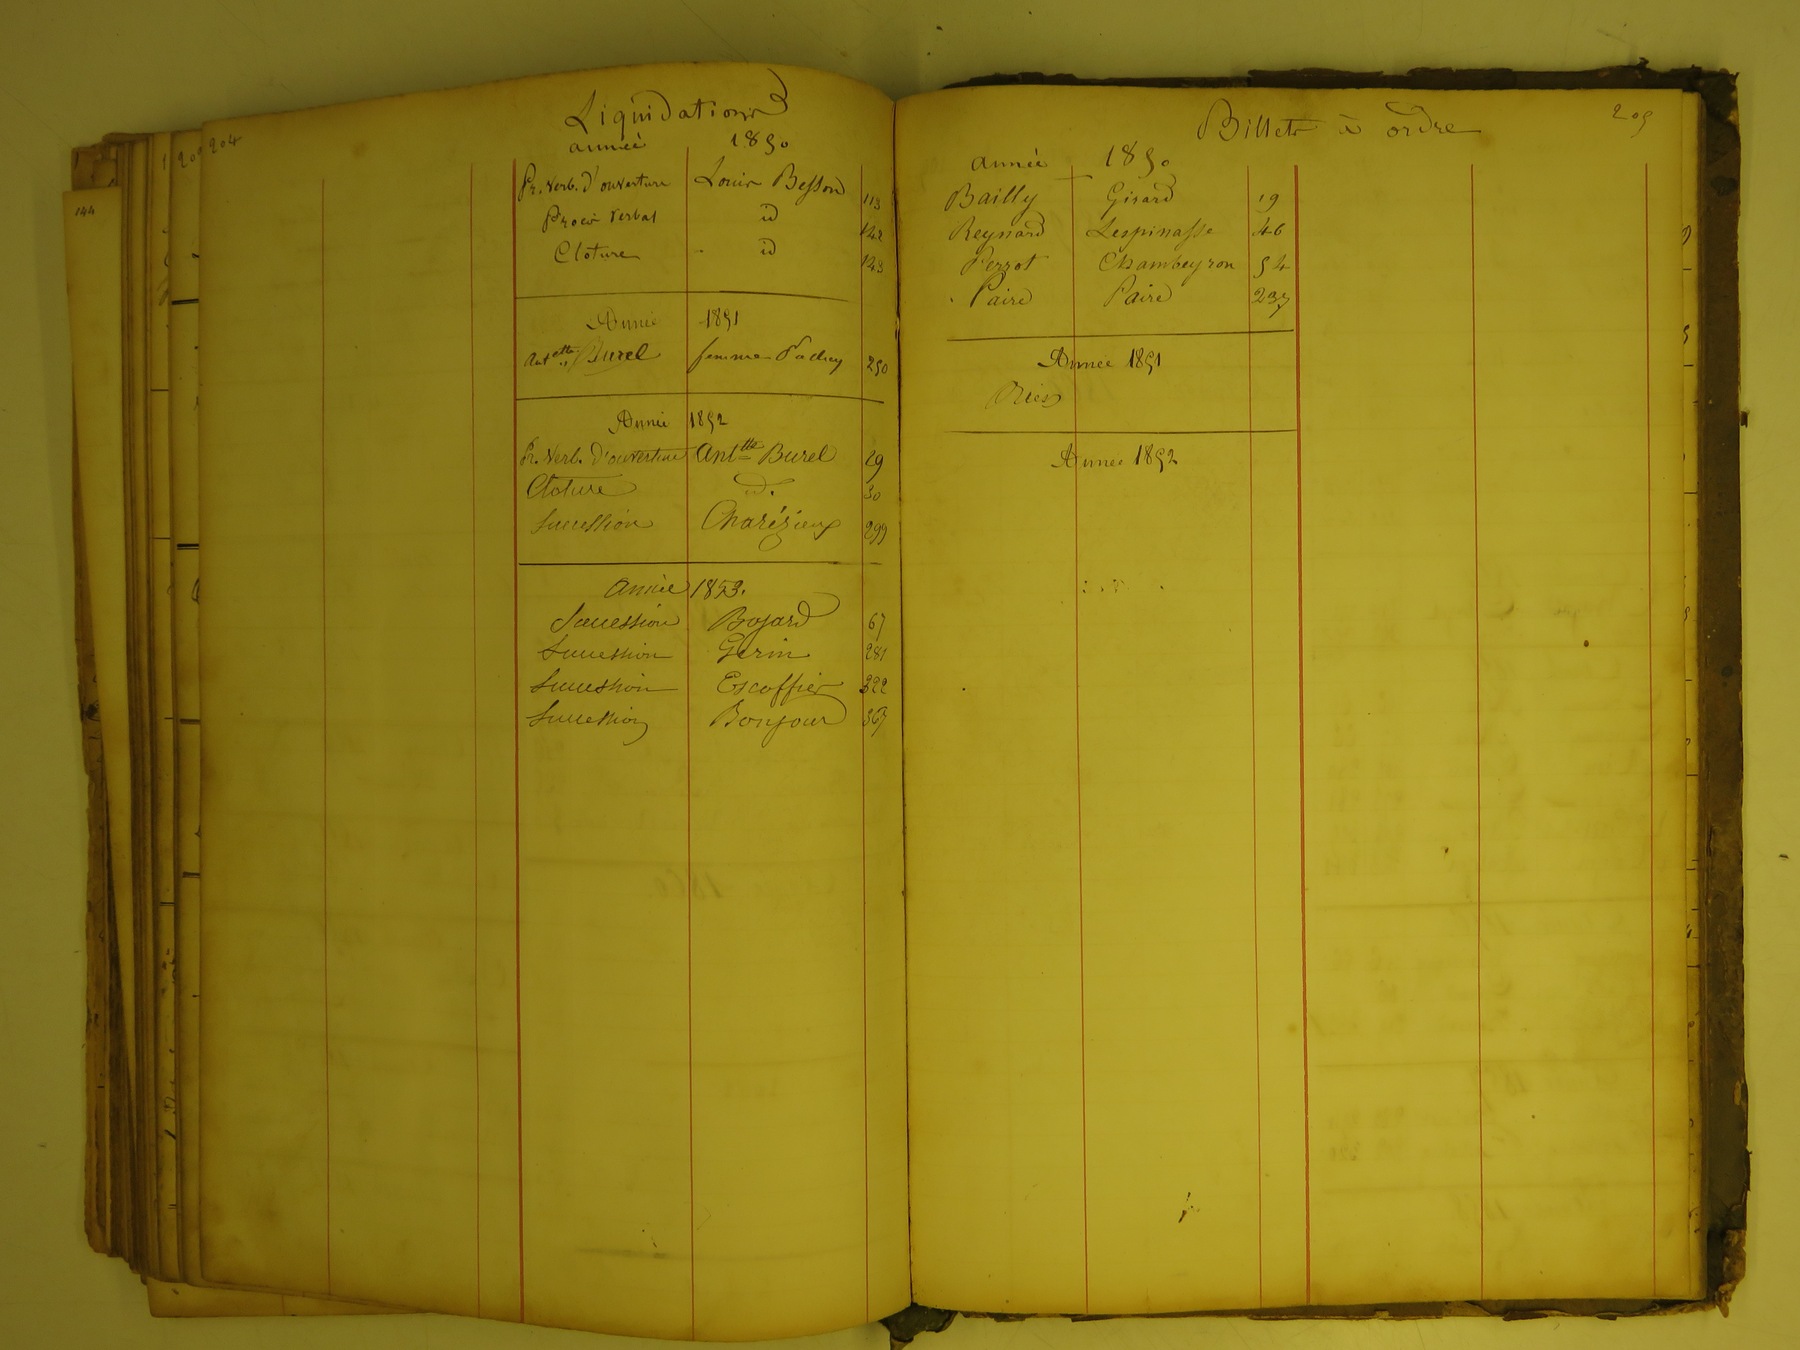 204
Liquidations
année 1850
Pr. Verb. d'ouverture Louis Besson 113
Procès Verbal id 142
Cloture - id 143
Année 1851
Antette Burel femme 250
Année 1852
Pr. Verb. d'ouverture Antette Burel 29
Cloture id. 30
Succession Charézieux 299
Année 1853.
Succession Bojard 67
Succession Gerin 281
Succession Escoffier 322
Succession Bonjour 367
205
Billets à ordre
année 1850
Bailly Girard 19
Reynard Lespinasse 46
Perrot Chambeyron 54
Paire Paire 237
Année 1851
Année 1852
144